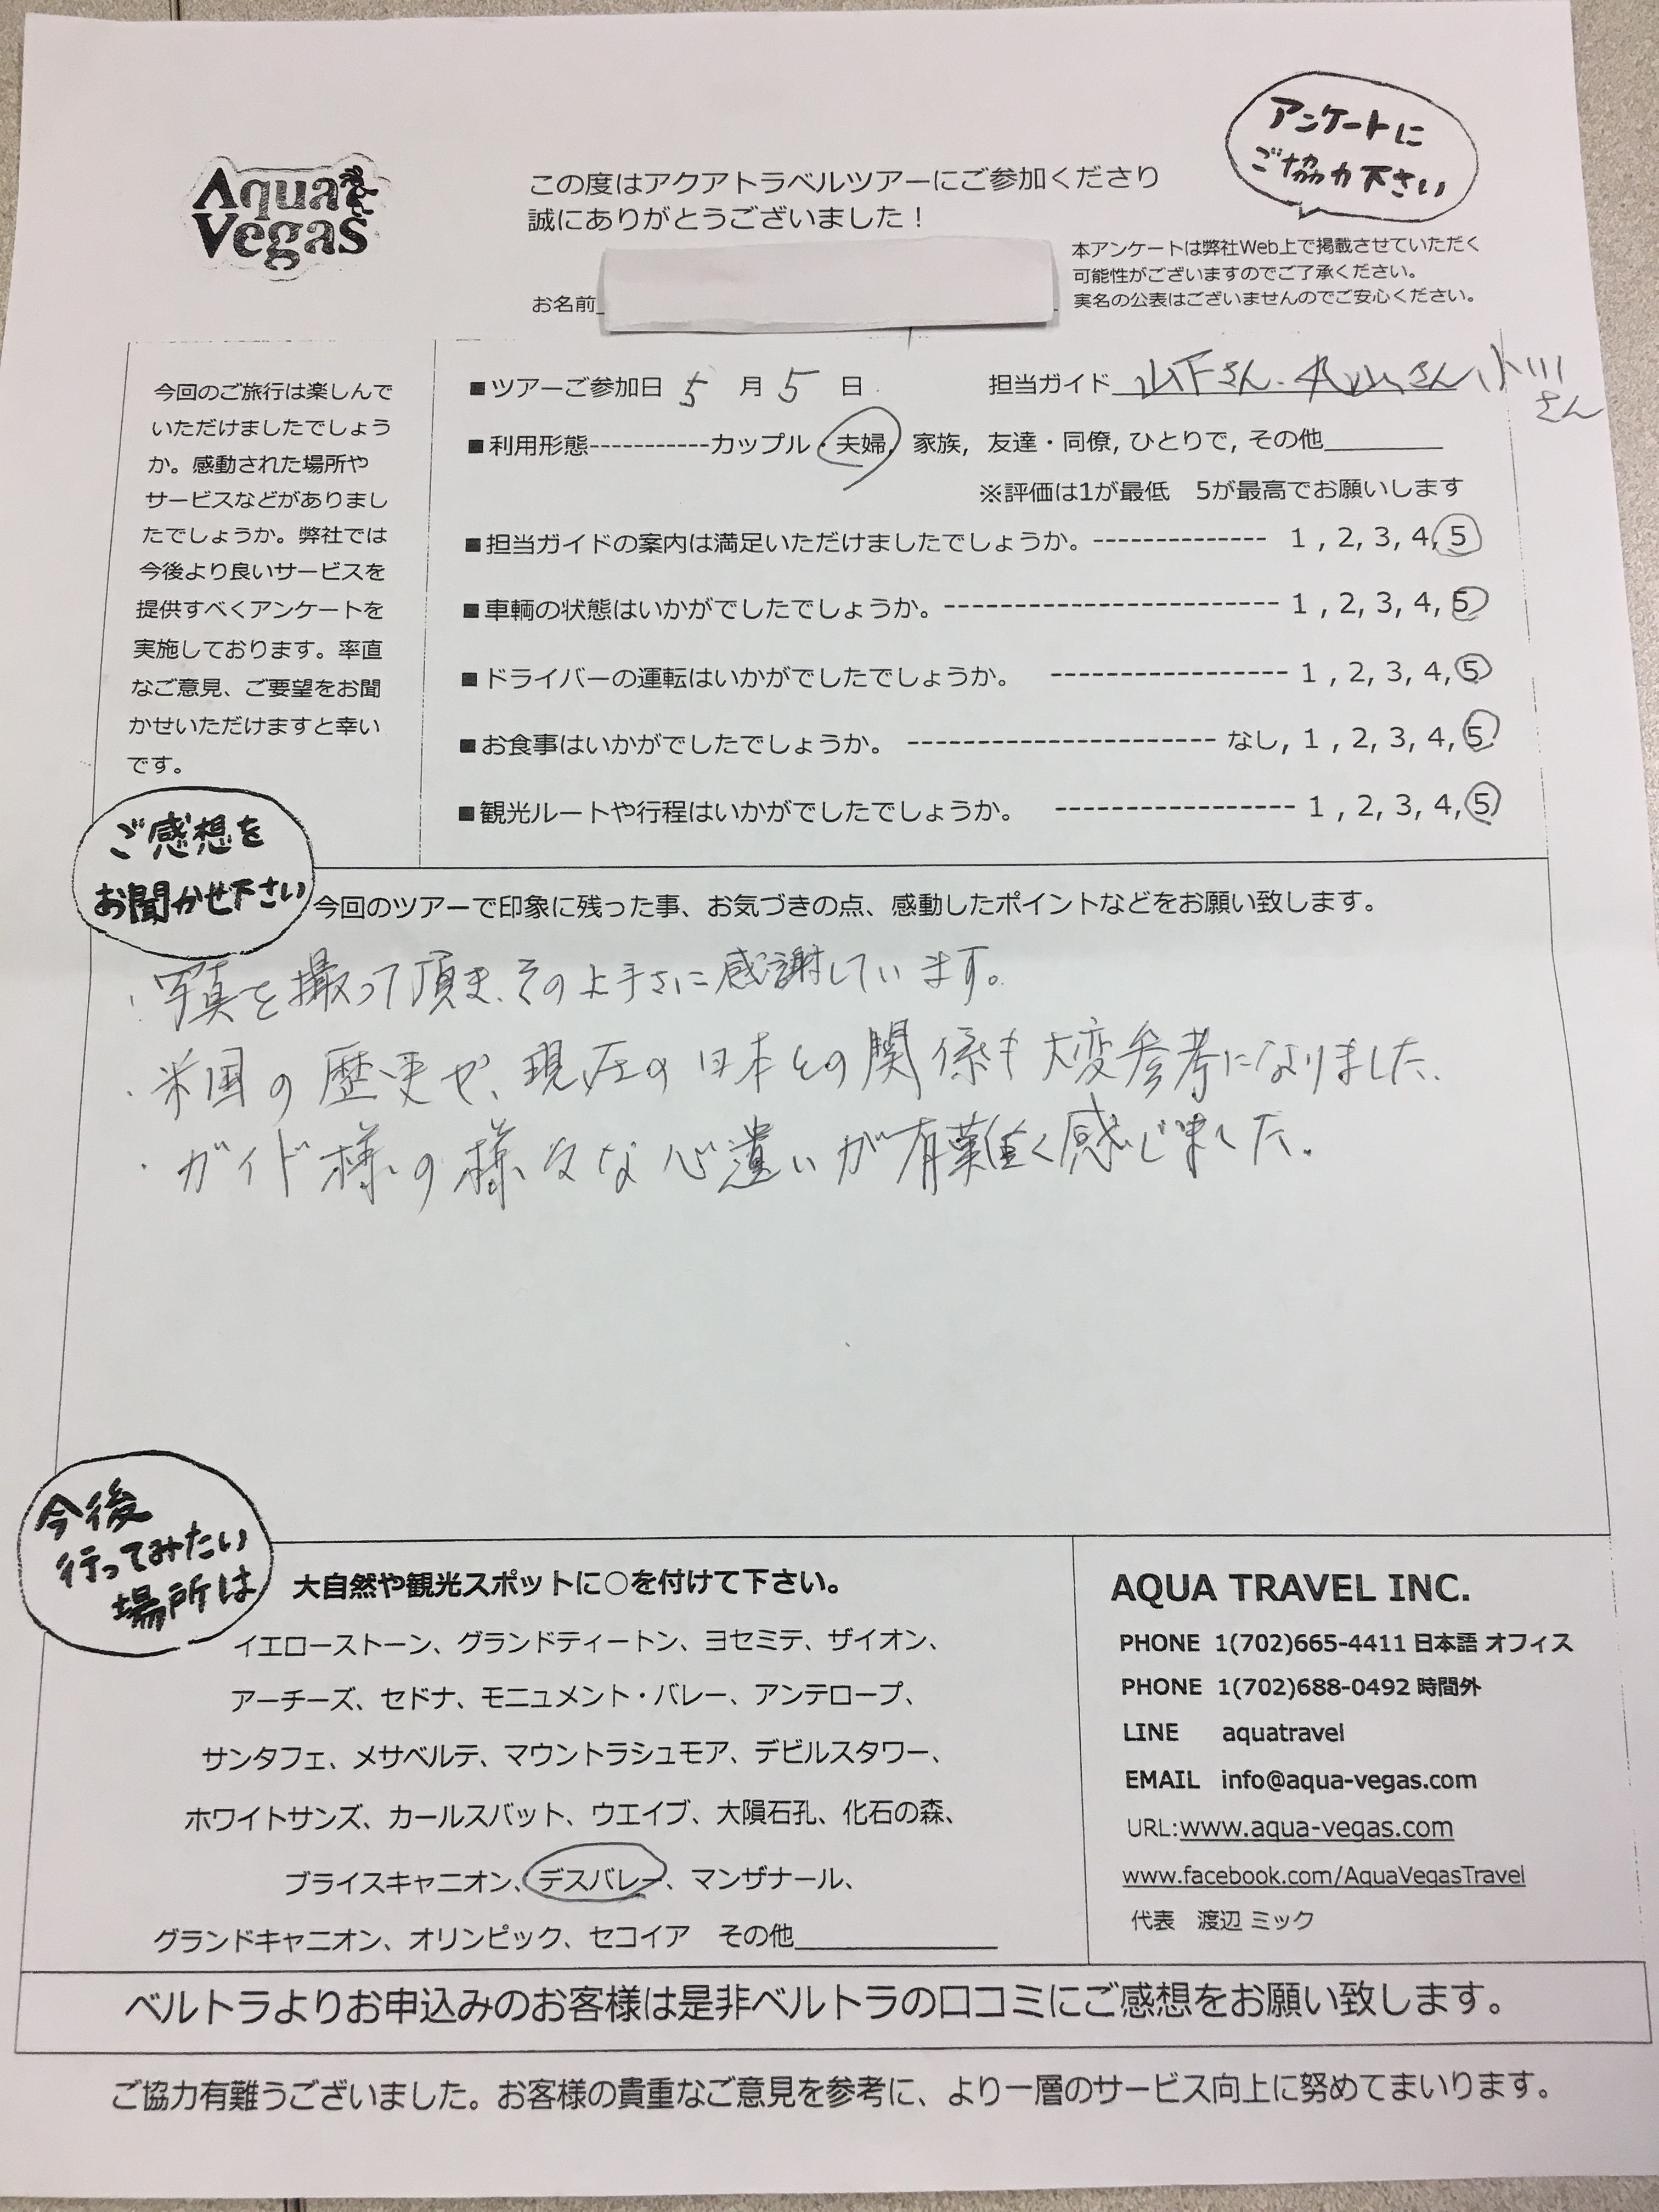 Aqua
Vegas
この度はアクアトラベルツアーにご参加くださり
誠にありがとうございました！
アンケートに
ご協力下さい
本アンケートは弊社Web上で掲載させていただく
可能性がございますのでご了承ください。
実名の公表はございませんのでご安心ください。
お名前
今回のご旅行は楽しんで
いただけましたでしょう
か。感動された場所や
サービスなどがありまし
たでしょうか。弊社では
今後より良いサービスを
提供すべくアンケートを
実施しております。率直
なご意見、ご要望をお聞
かせいただけますと幸い
です。
■ツアーご参加日 5 月 5 日 担当ガイド 山下さん.丸山さん 小川
さん
■利用形態-----------カップル・夫婦, 家族, 友達・同僚, ひとりで, その他________
※評価は1が最低 5が最高でお願いします
■担当ガイドの案内は満足いただけましたでしょうか。-------------- 1 , 2, 3, 4, 5
■車輌の状態はいかがでしたでしょうか。----------------------- 1 , 2, 3, 4, 5
■ドライバーの運転はいかがでしたでしょうか。 ----------------- 1 , 2, 3, 4, 5
■お食事はいかがでしたでしょうか。 ---------------------- なし, 1 , 2, 3, 4, 5
■観光ルートや行程はいかがでしたでしょうか。 ----------------- 1 , 2, 3, 4, 5
ご感想を
お聞かせ下さい
今回のツアーで印象に残った事、お気づきの点、感動したポイントなどをお願い致します。
・写真を撮って頂き、その上手さに感謝しています。
・米国の歴史や、現在の日本との関係も大変参考になりました、
・ガイド様の様々な心遣いが有難く感じました.
今後
行ってみたい
場所は
大自然や観光スポットに○を付けて下さい。
イエローストーン、グランドティートン、ヨセミテ、ザイオン、
アーチーズ、セドナ、モニュメント・バレー、アンテロープ、
サンタフェ、メサベルテ、マウントラシュモア、デビルスタワー、
ホワイトサンズ、カールスバット、ウエイブ、大隕石孔、化石の森、
ブライスキャニオン、デスバレー、マンザナール、
グランドキャニオン、オリンピック、セコイア その他______________
AQUA TRAVEL INC.
PHONE 1(702)665-4411 日本語 オフィス
PHONE 1(702)688-0492 時間外
LINE aquatravel
EMAIL info@aqua-vegas.com
URL:www.aqua-vegas.com
www.facebook.com/AquaVegasTravel
代表 渡辺 ミック
ベルトラよりお申込みのお客様は是非ベルトラの口コミにご感想をお願い致します。
ご協力有難うございました。お客様の貴重なご意見を参考に、より一層のサービス向上に努めてまいります。